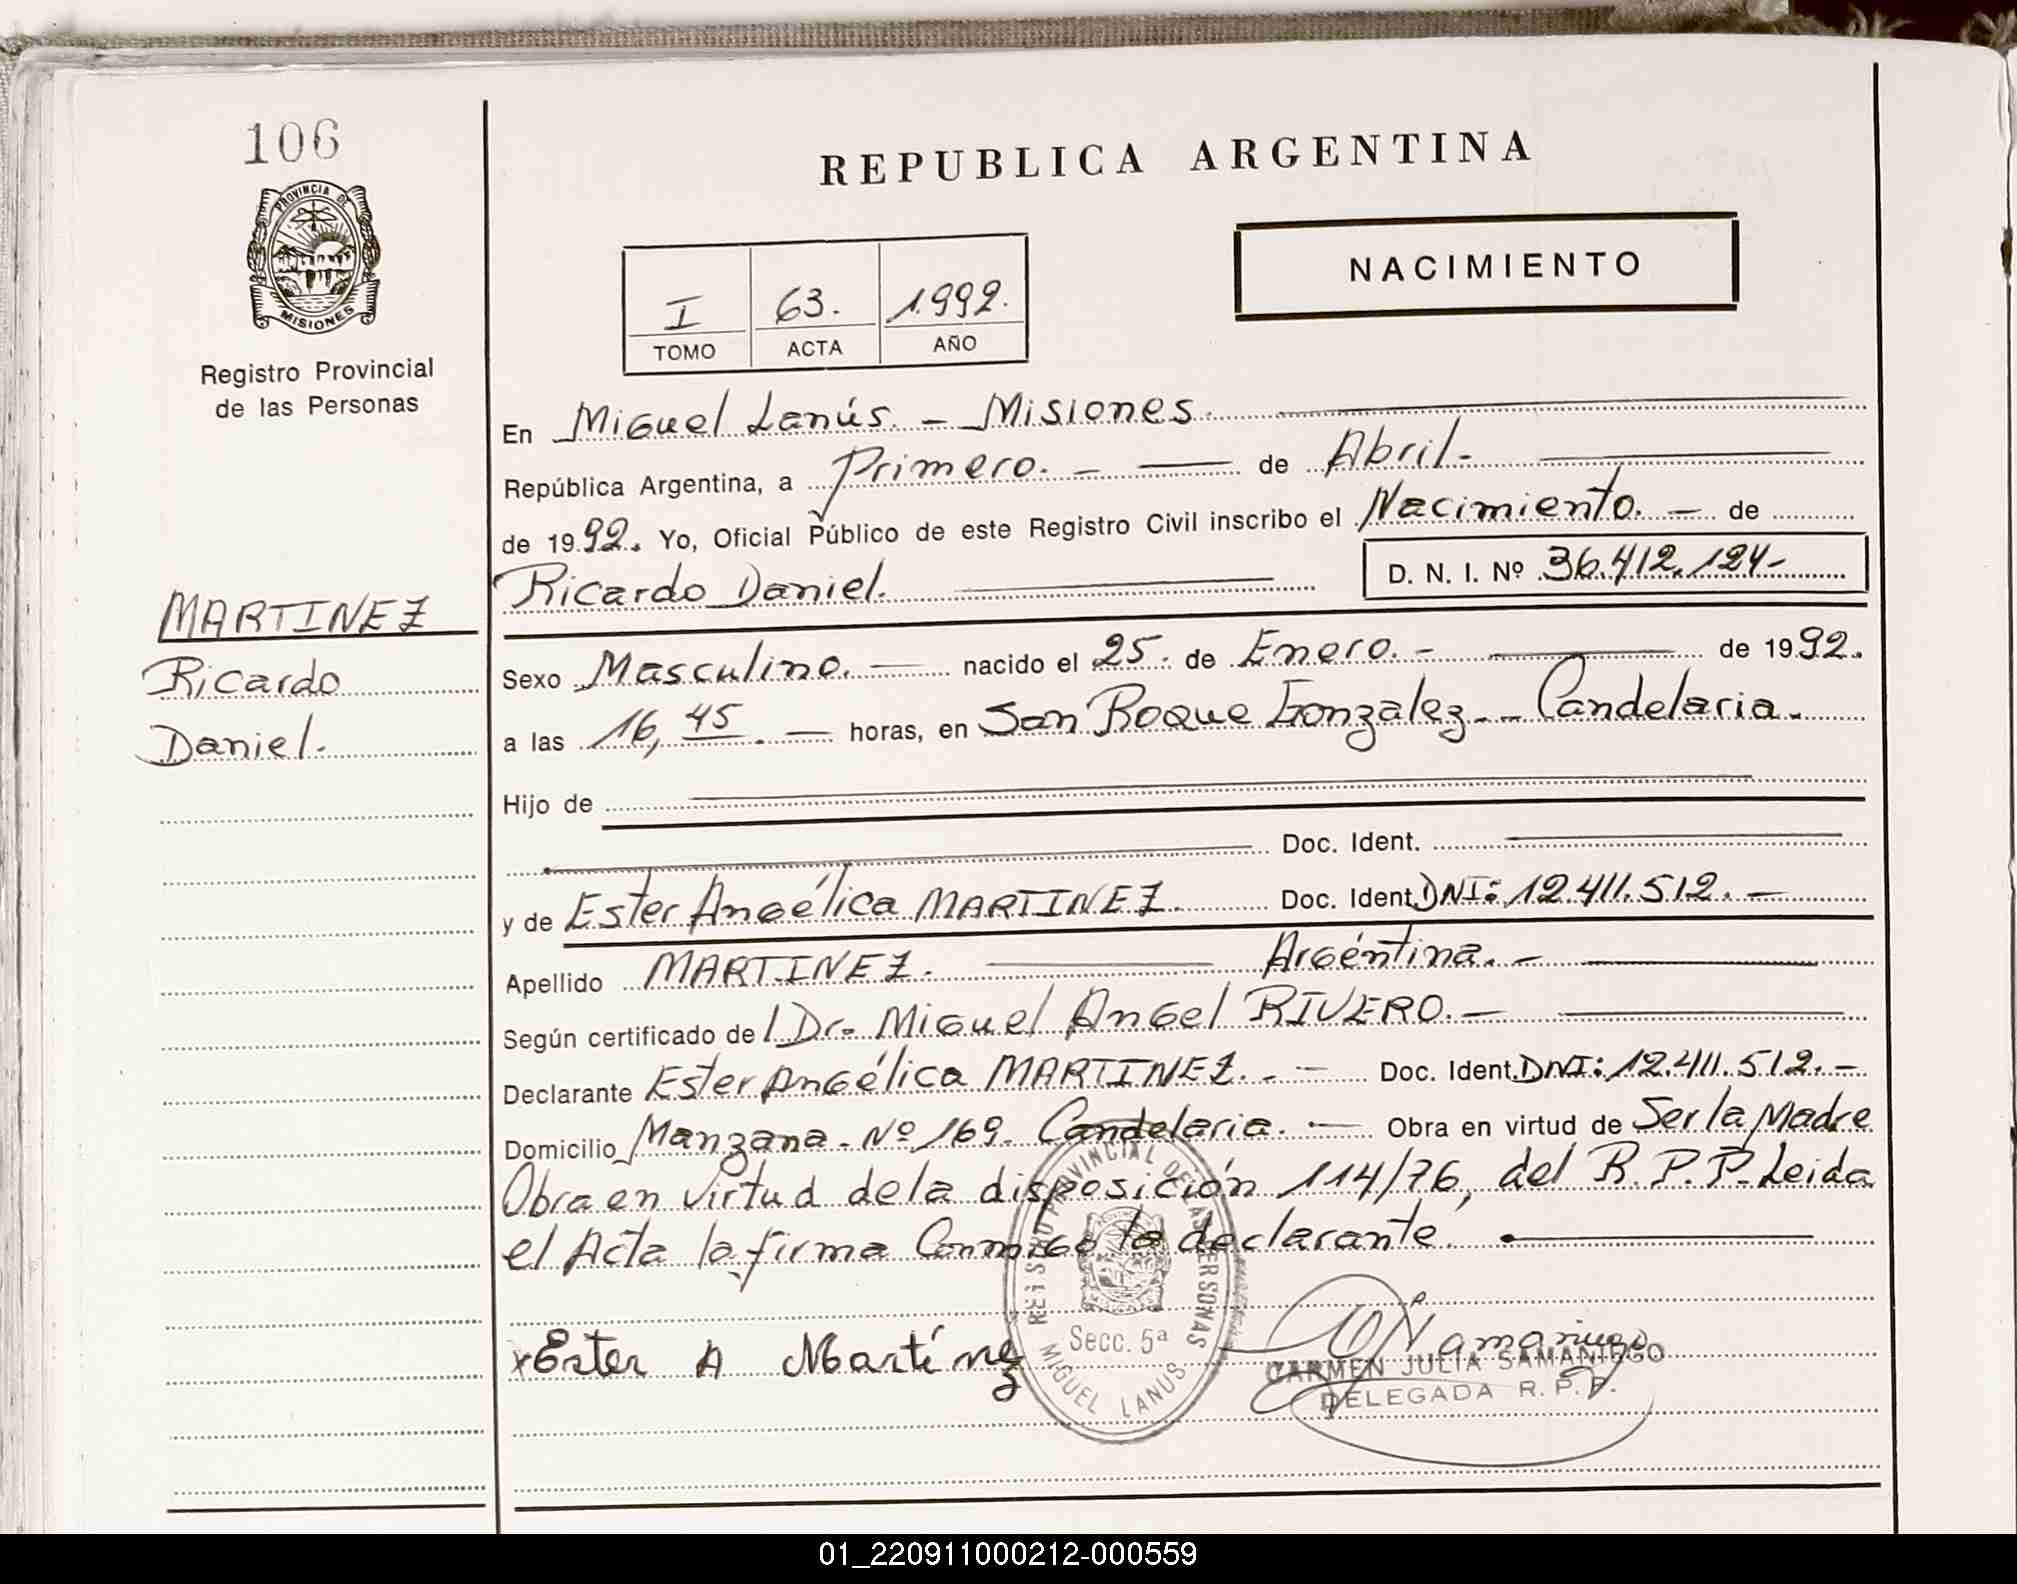 106
PROVINCIA DE
MISIONES
Registro Provincial
de las Personas
MARTINEZ
Ricardo
Daniel.
REPUBLICA ARGENTINA
NACIMIENTO
I 63. 1.992.
TOMO ACTA AÑO
En Miguel Lanús. - Misiones.
República Argentina, a Primero. - de Abril.-
de 1992. Yo, Oficial Público de este Registro Civil inscribo el Nacimiento. - de
Ricardo Daniel. D. N. I. Nº 36.412.124-
Sexo Masculino. - nacido el 25. de Enero. - de 1992.
a las 16,45. - horas, en San Roque Gonzalez - Candelaria.
Hijo de
Doc. Ident.
y de Ester Angélica MARTINEZ. Doc. Ident. DNI: 12.411.512. -
Apellido MARTINEZ. Argéntina. -
Según certificado de Dr. Miguel Angel RIVERO. -
Declarante Ester Angélica MARTINEZ. - Doc. Ident. DNI: 12.411.512. -
Domicilio Manzana - Nº 169. Candelaria. - Obra en virtud de Ser la Madre
Obra en virtud de la disposición 114/76, del R.P.P. Leida
el Acta la firma Conmigo la declarante.
x Ester A Martínez
REGISTRO PROVINCIAL DE LAS PERSONAS
Secc. 5ª
MIGUEL LANUS
CARMEN JULIA SAMANIEGO
DELEGADA R. P. P.
01_220911000212-000559